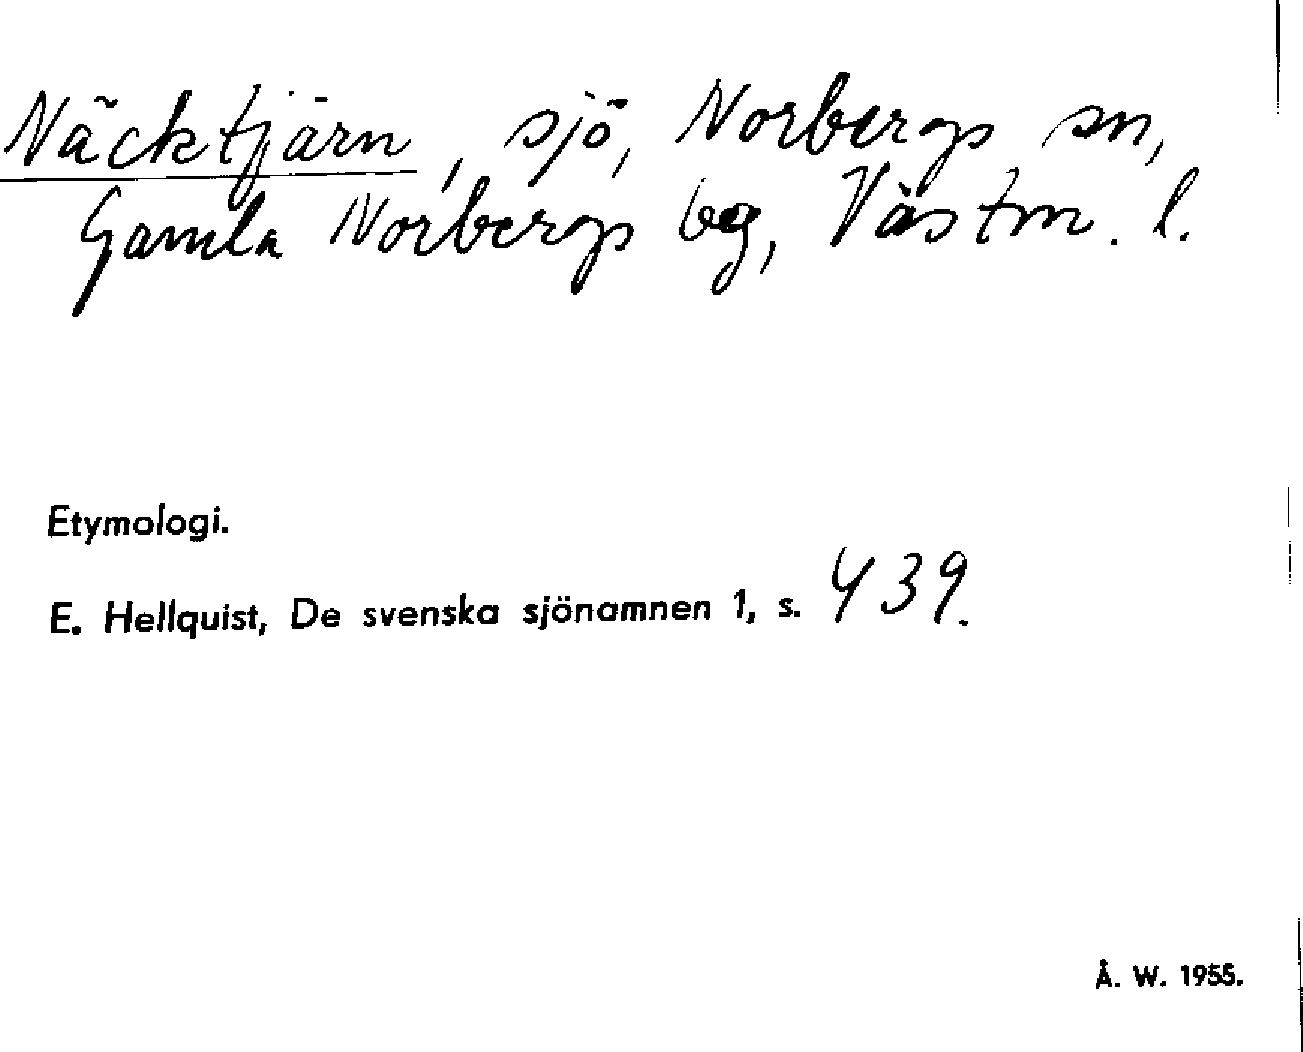 Näcktjärn, sjö, Norbergs sn,
Gamla Norbergs bg, Västm. l.
Etymologi.
E. Hellquist, De svenska sjönamnen 1, s. 439.
Å. W. 1955.